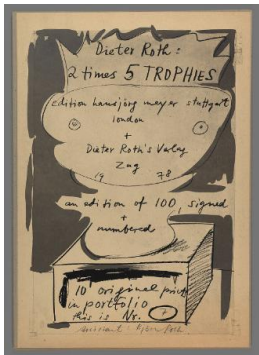 Dieter Roth:
2 times 5 TROPHIES
edition hansjörg mayer stuttgart
london
+
Dieter Roth's Verlag
Zug
19 78
an edition of 100, signed
+
numbered
10 original prints
in portfolio
this is Nr.
Assistant: